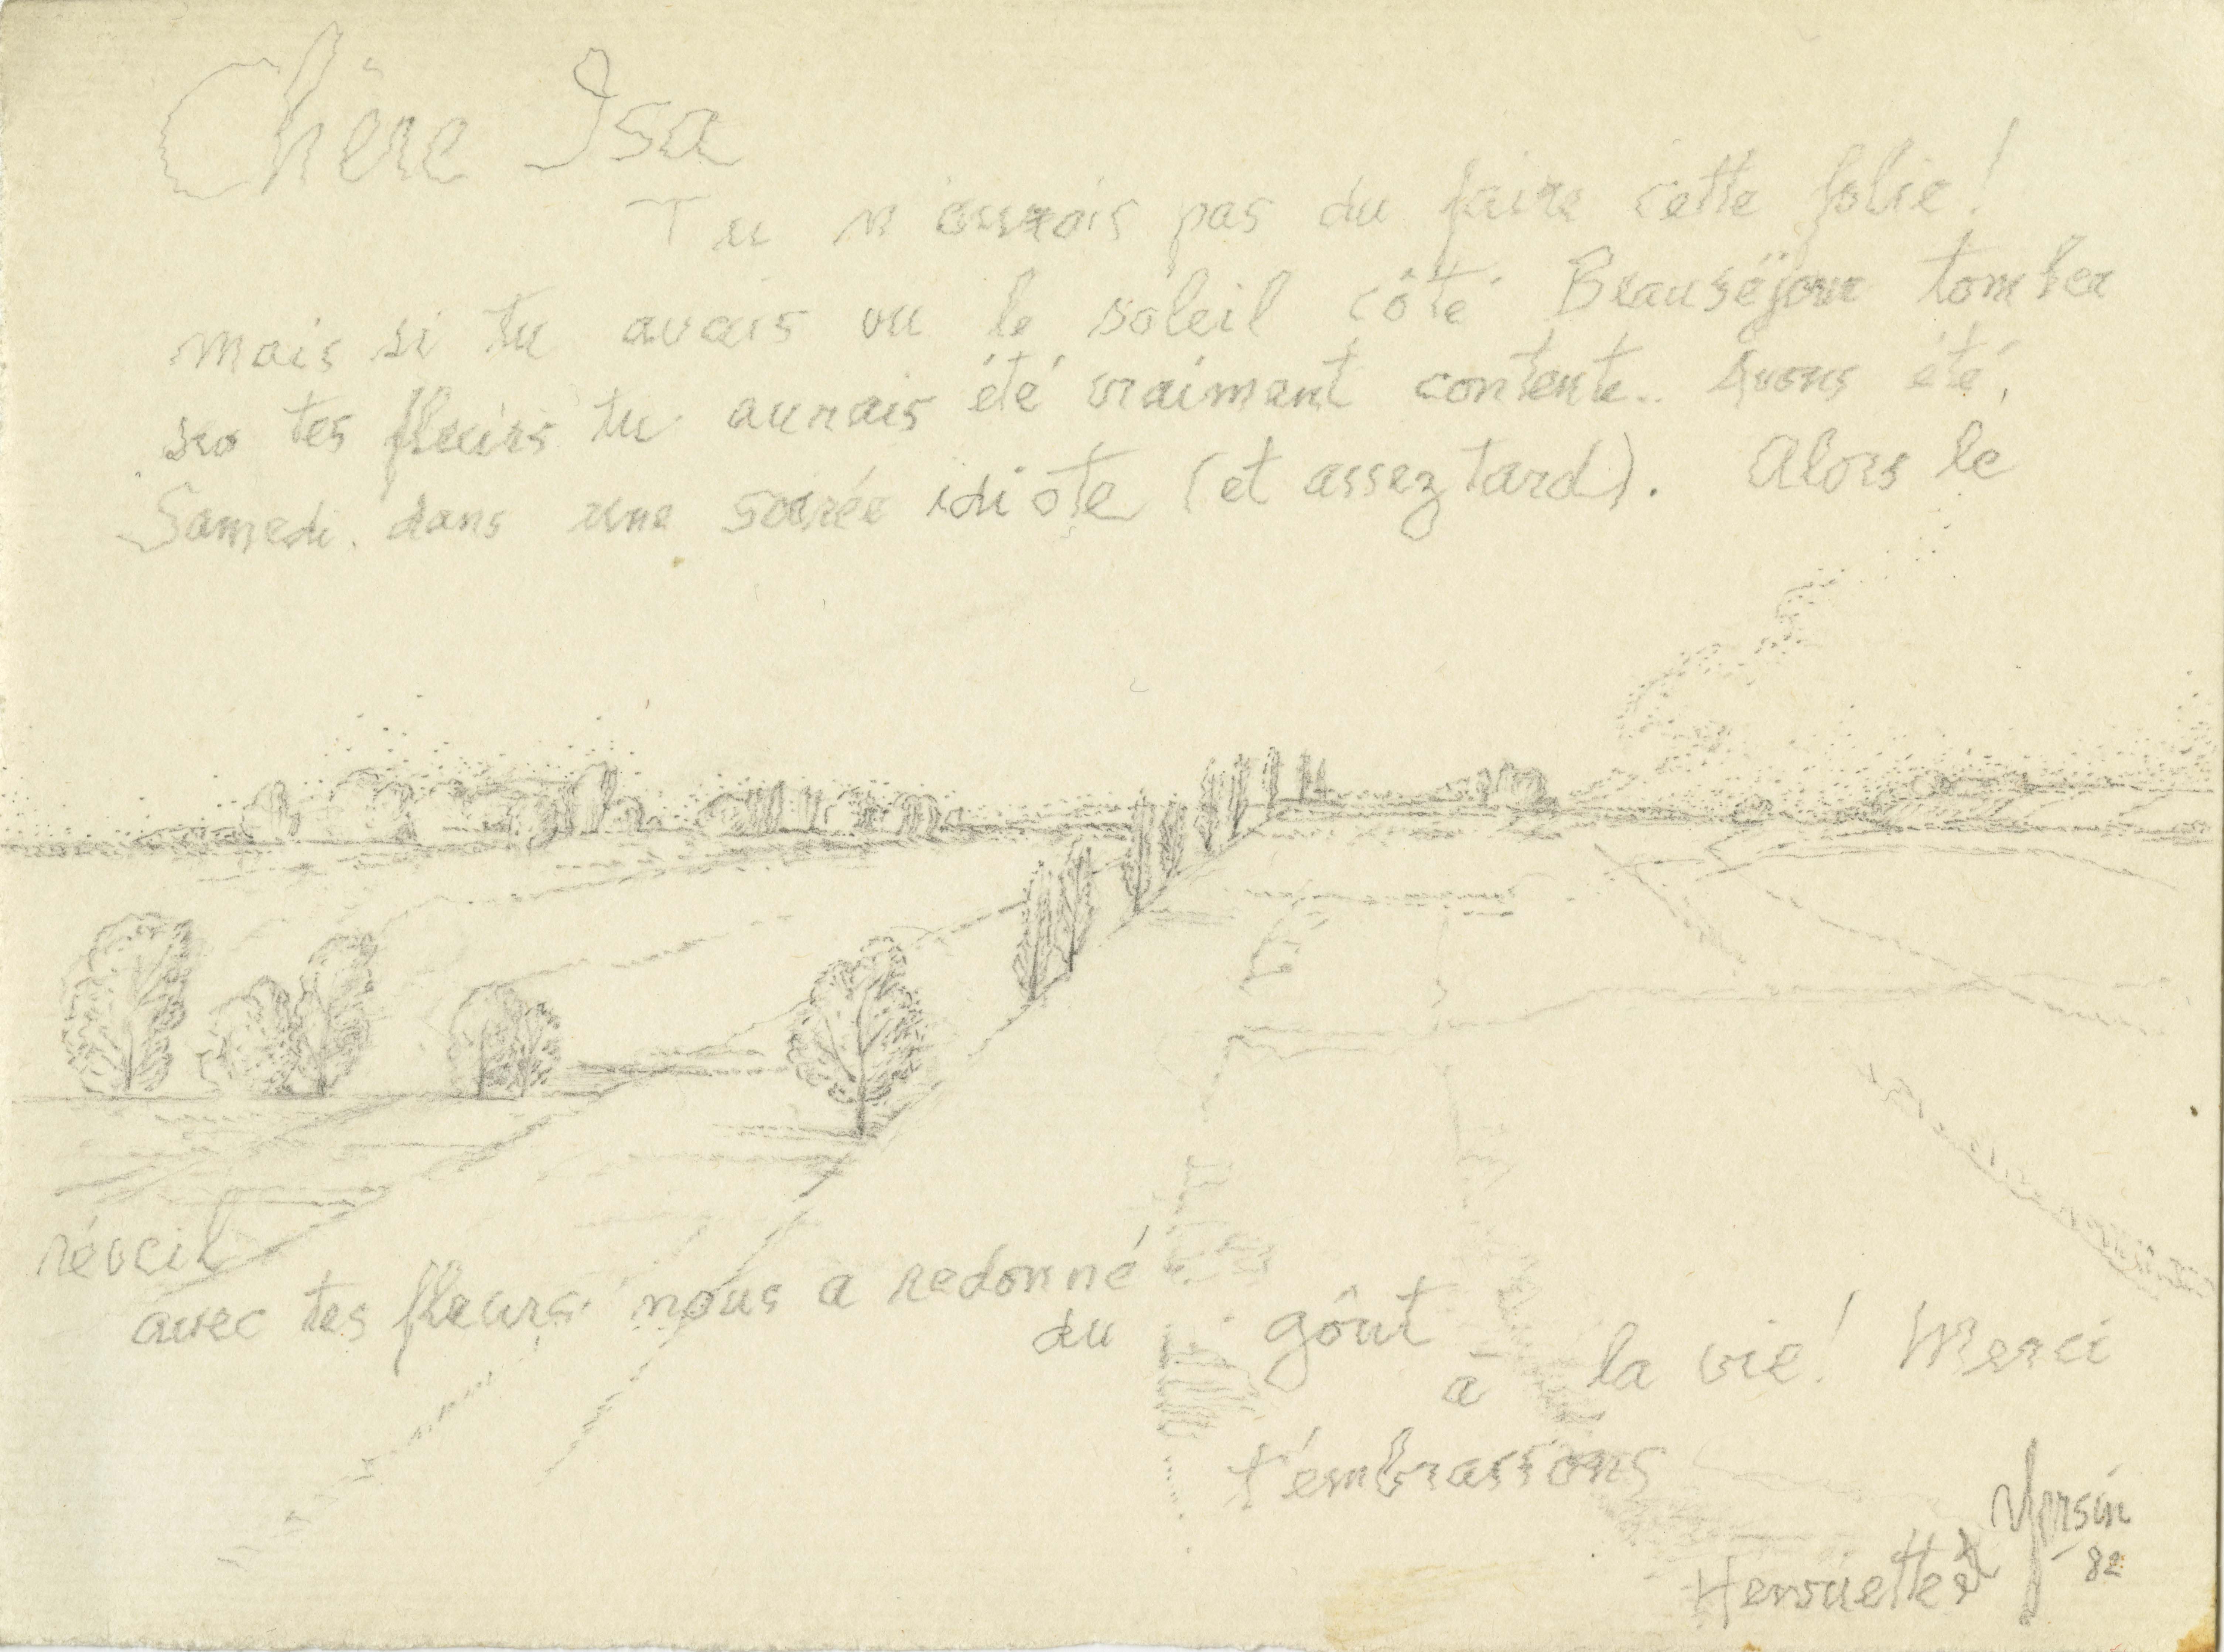 Chère Isa
Tu n'aurais pas du faire cette folie!
mais si tu avais vu le soleil côté Beauséjour tomber
sur tes fleurs tu aurais été vraiment contente.. Avons été,
Samedi. dans une soirée idiote (et assez tard). Alors le
réveil
avec tes fleurs nous a redonné
du goût
à la vie! Merci
t'embrassons
Henriette et Yersin
82